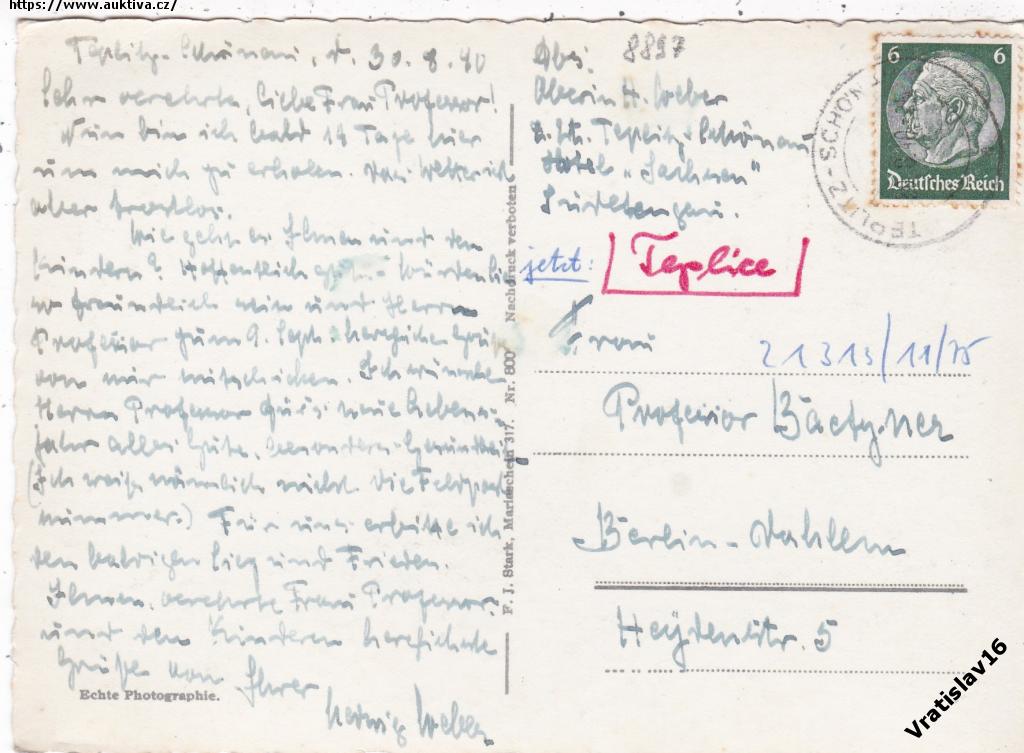 https://www.auktiva.cz/
Teplitz-Schönau, d. 30.8.40
Sehr verehrte, liebe Frau Professor!
Nun bin ich bald 14 Tage hier
um mich zu erholen. Das Wetter ist
aber trostlos.
Wie geht es Ihnen und den
Kindern? Hoffentlich gut. Würden Sie
so freundlich sein und Herrn
Professor zum 9. Sept. herzliche Grüße
von mir mitschicken. Ich wünsche
Herrn Professor fürs neue Lebens-
jahr alles Gute, besonders Gesundheit
(Ich weiß nämlich nicht die Feldpost-
nummer.) Für uns erbitte ich
den baldigen Sieg und Frieden.
Ihnen, verehrte Frau Professor
und den Kindern herzlichste
Grüße von Ihrer
Hedwig Weber
Echte Photographie.
F. J. Stark, Mariaschein 317. Nr. 800 Nachdruck verboten
8897
Abs.
Oberin H. Weber
Teplitz-Schönau
Hotel „Sachsen"
Sudetengau.
jetzt: Teplice
6 6
Deutsches Reich
TEPLITZ-SCHÖNAU
Frau
21313/11/75
Professor
Berlin-Dahlem
Heydenstr. 5
Vratislav16